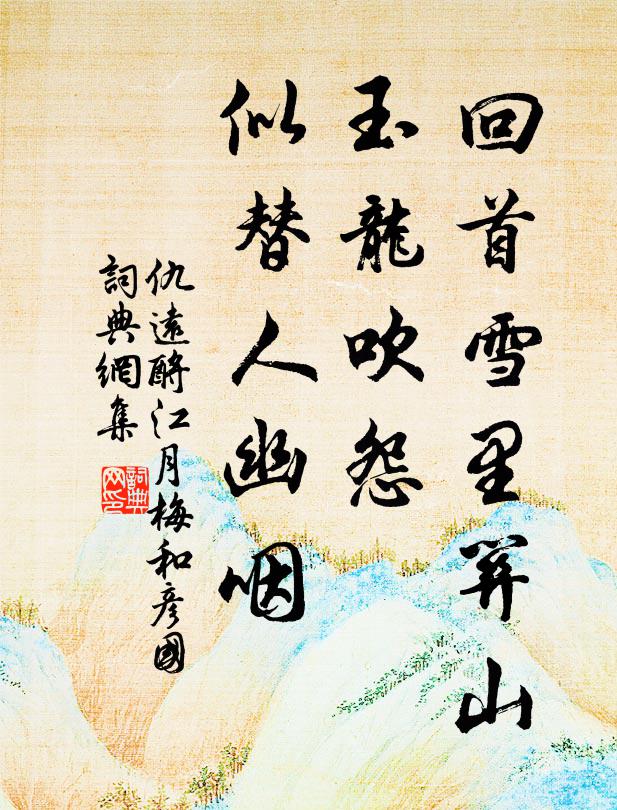 回首雪里關山
玉龍吹怨
似替人幽咽
仇遠酹江月梅和彥國
詞典網集
詞典
网印